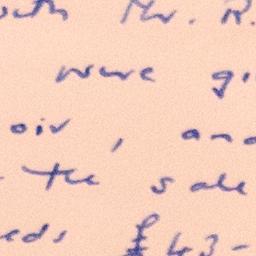 Mr. R.
were gi
oir, and
the sale
eds £43-